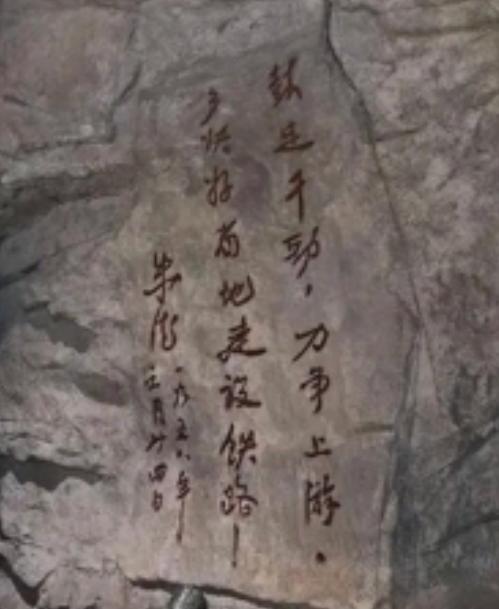 鼓足干劲，力争上游，
多快好省地建设铁路！
朱德
一九五八年
月廿四日